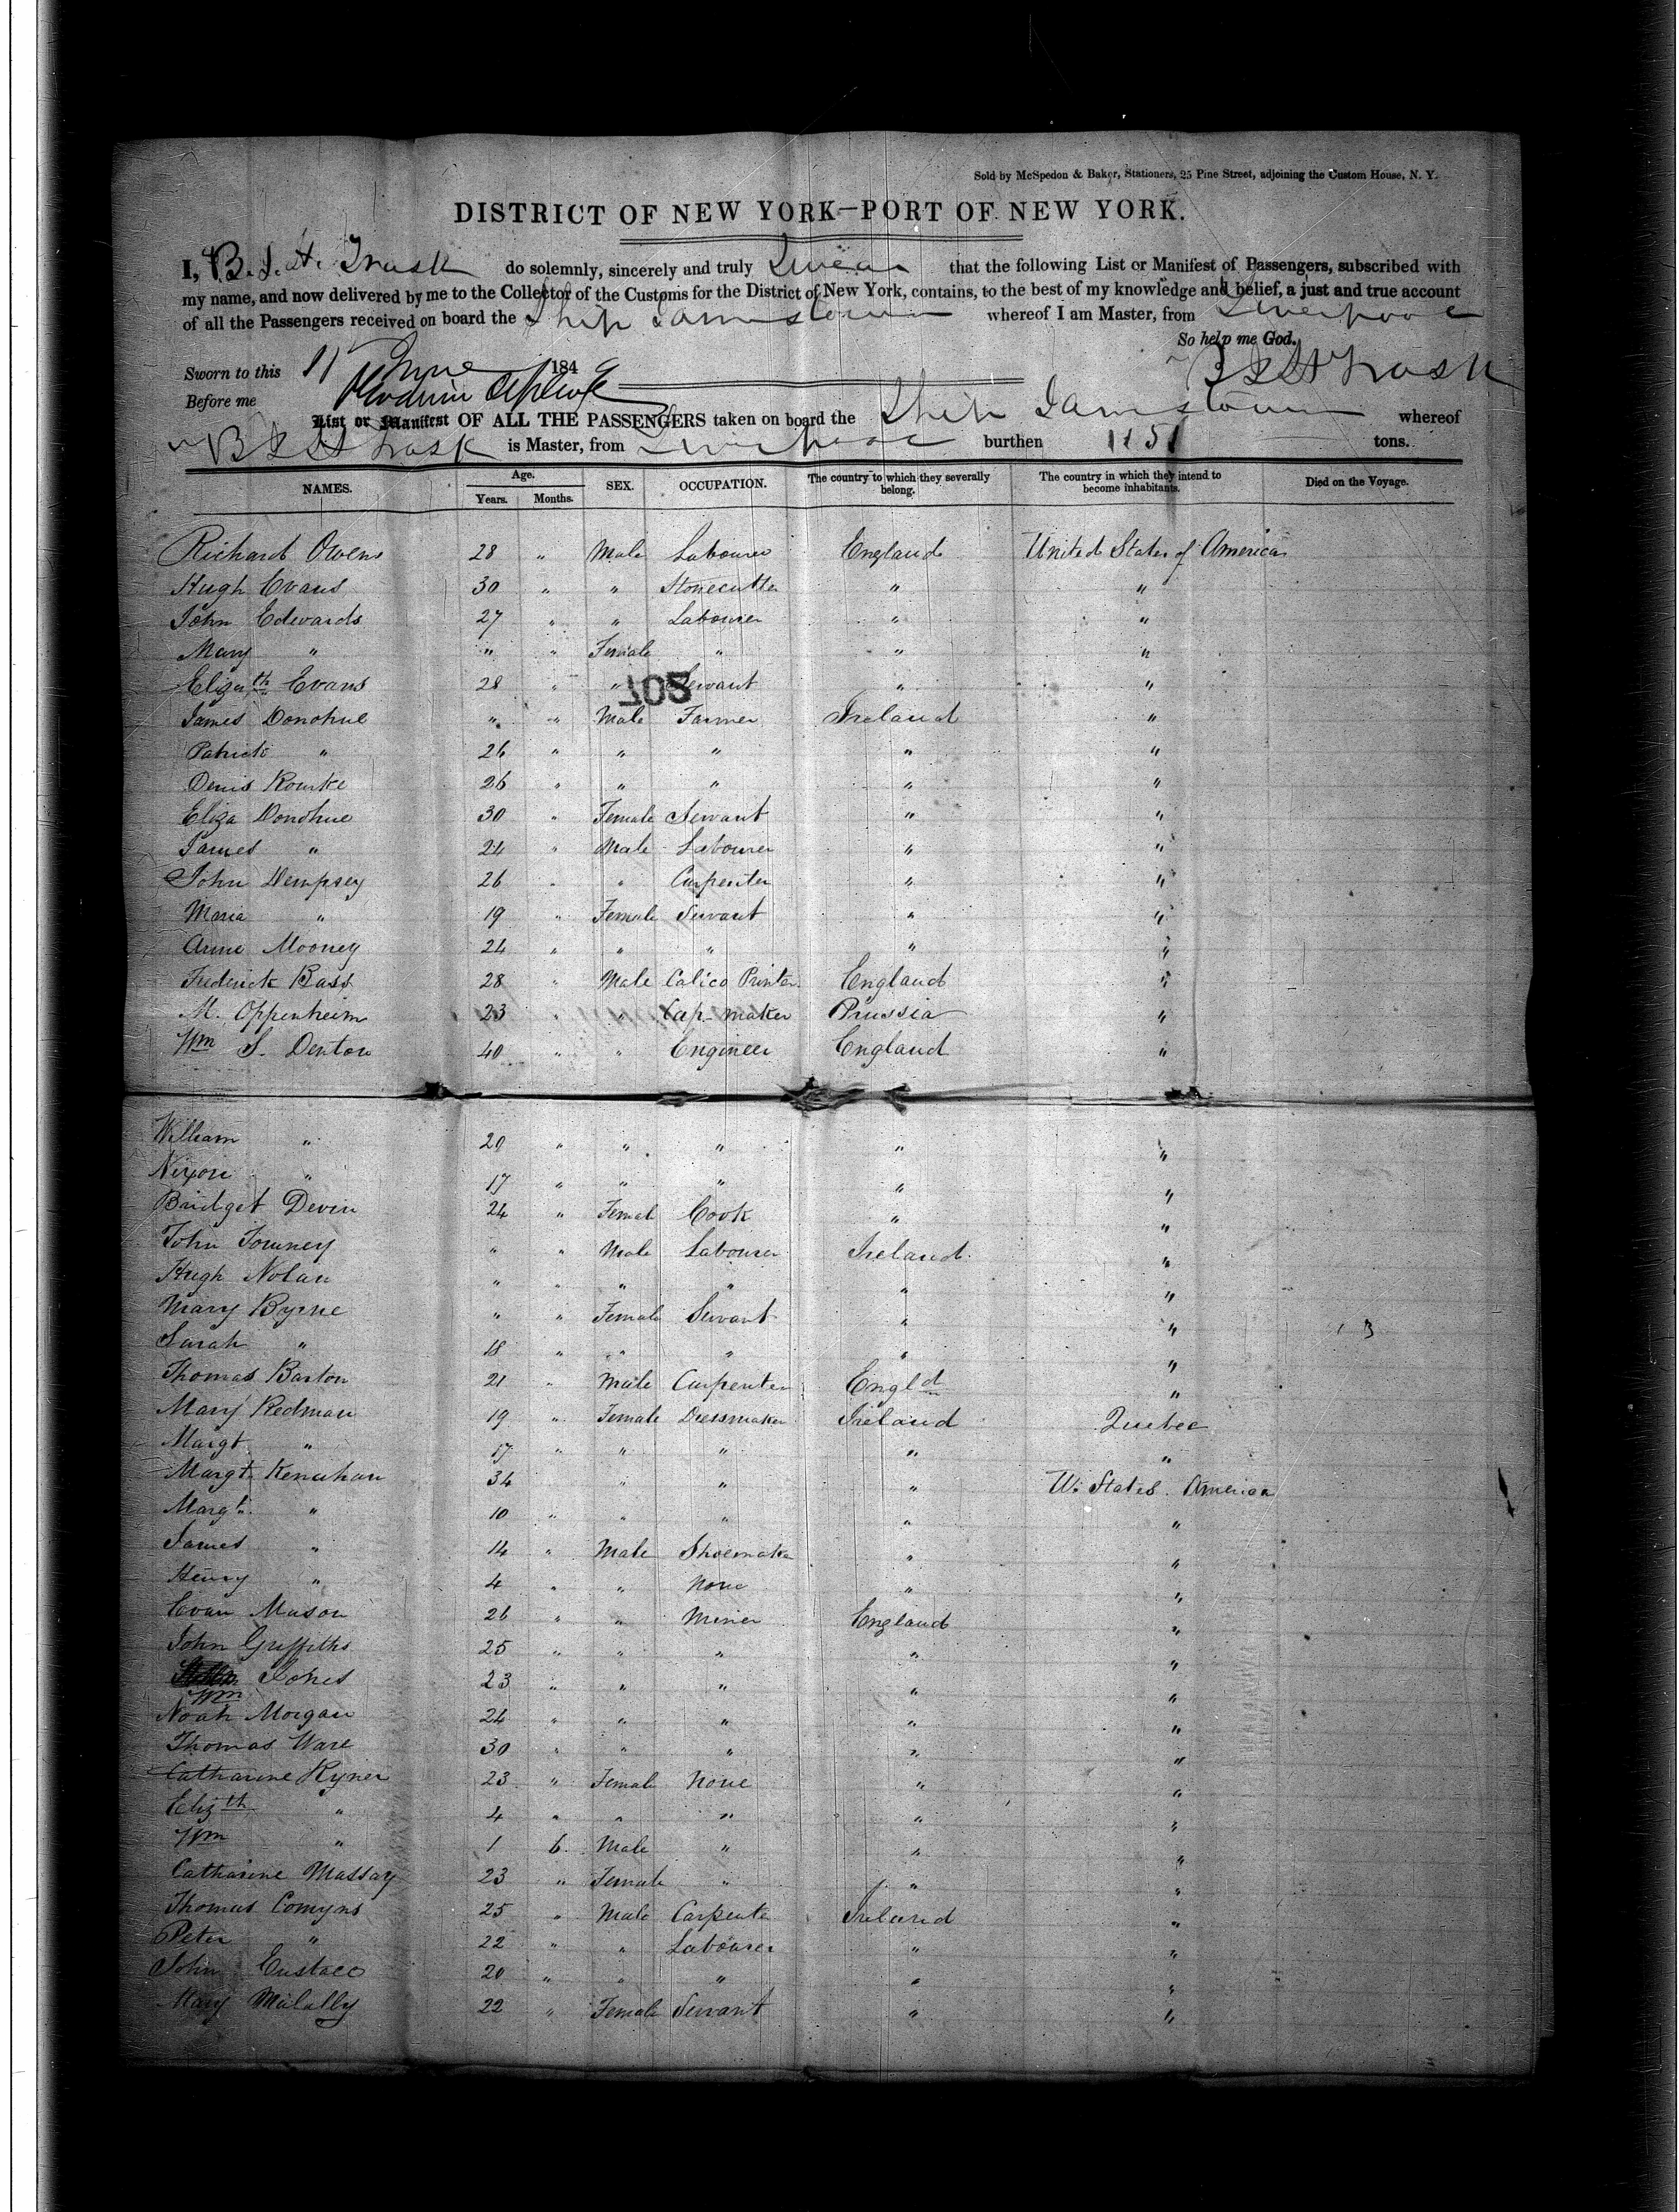 Sold by McSpedon & Baker, Stationers, 25 Pine Street, adjoining the Custom House, N. Y.
DISTRICT OF NEW YORK—PORT OF NEW YORK.
I, Trask do solemnly, sincerely and truly Swear that the following List or Manifest of Passengers, subscribed with
my name, and now delivered by me to the Collector of the Customs for the District of New York, contains, to the best of my knowledge and belief, a just and true account
of all the Passengers received on board the Ship Jamestown whereof I am Master, from Liverpool
So help me God.
Trask
Sworn to this 11 June 1849
Before me
List or Manifest OF ALL THE PASSENGERS taken on board the Ship Jamestown whereof
Trask is Master, from Liverpool burthen 1151 tons.
NAMES. Age. Years. Months. SEX. OCCUPATION. The country to which they severally belong. The country in which they intend to become inhabitants. Died on the Voyage.
Richard Owens 28 " Male Labourer England United States of America
Hugh Evans 30 " " Stonecutter " "
John Edwards 27 " " Labourer " "
Mary " " " Female " " "
Elizath Evans 28 " " Servant " "
708
James Donohue " " Male Farmer Ireland "
Patrick " 26 " " " " "
Denis Rourke 26 " " " " "
Eliza Donohue 30 " Female Servant " "
James " 24 " Male Labourer " "
John Dempsey 26 " " Carpenter " "
Maria " 19 " Female Servant " "
Anne Mooney 24 " " " " "
Frederick Bass 28 " Male Calico Printer England "
M. Oppenheim 23 " " Cap-maker Prussia "
Wm S. Denton 40 " " Engineer England "
William " 20 " " " " "
Nixon " 17 " " " " "
Bridget Devin 24 " Femal Cook " "
John " " Male Labourer Ireland "
Hugh Nolan " " " " " "
Mary Byrne " " Female Servant " "
Sarah " 18 " " " " "
Thomas Barton 21 " Male Carpenter Engld "
Mary Redman 19 " Female Dressmaker Ireland Quebec
Margt " 17 " " " " "
Margt Kenahan 34 " " " U. States America
Margt " 10 " " " " "
James " 14 " Male Shoemaker " "
Henry " 4 " " None " "
Evan Mason 26 " " Miner England "
John Griffiths 25 " " " " "
Wm Jones 23 " " " " "
Noah Morgan 24 " " " " "
Thomas Ware 30 " " " " "
Catharine Kyner 23 " Female None " "
Elizth " 4 " " " " "
Wm " 1 6 Male " " "
Catharine Massay 23 " Female " " "
Thomas Comyns 25 " Male Carpenter Ireland "
Peter " 22 " " Labourer " "
John Eustace 20 " " " " "
Mary Mulally 22 " Female Servant " "